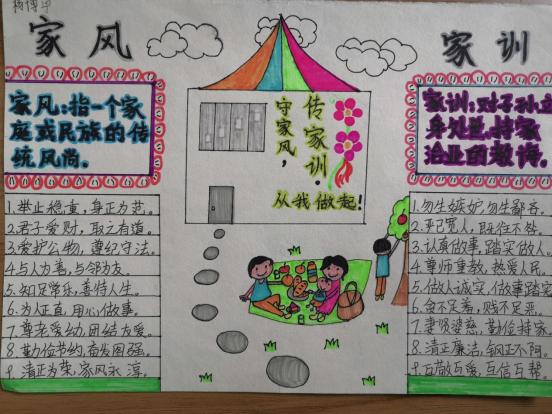 杨博华
家风
家训
家风:指一个家
庭或民族的传
统风尚.
传家训.
守家风,
从我做起!
家训:对子孙立
身处世,持家
治业的教诲.
1.举止稳重,身正为范。
2.君子爱财,取之有道。
3.爱护公物,遵纪守法。
4.与人为善,与邻为友。
5.知足常乐,善待人生。
6.为人正直,用心做事。
7.尊老爱幼,团结友爱。
8.勤俭节约,奋发图强。
9.清正为荣,家风永淳。
1.勿生嫉妒,勿生鄙吝。
2.严己宽人,既往不咎。
3.认真做事,踏实做人。
4.尊师重教,热爱人民。
5.做人诚实,做事踏实
6.贫不足羞,贱不足恶。
7.妻贤婆慈,勤俭持家
8.清正廉洁,钢正不阿。
9.互敬互爱,互信互帮。